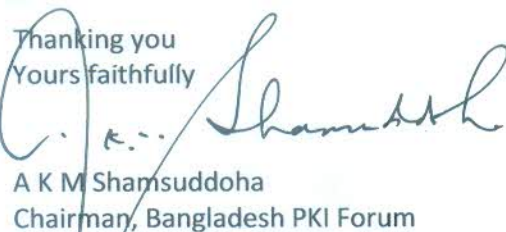 Thanking you
Yours faithfully
A K M Shamsuddoha
Chairman, Bangladesh PKI Forum